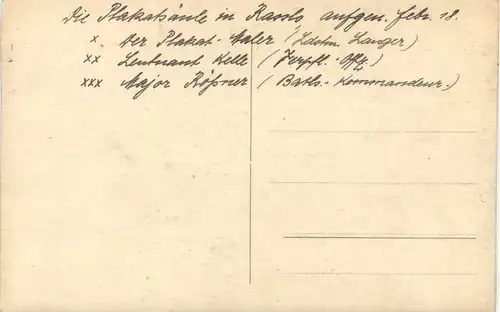 Die Plakatsäule in Kaoslo aufgen. Febr. 18.
x Der Plakat-Maler (Ldstm. Langer)
xx Leutnant Kelle (Verpfl.-Offz.)
xxx Major Rößner (Batls.-Kommandeur.)